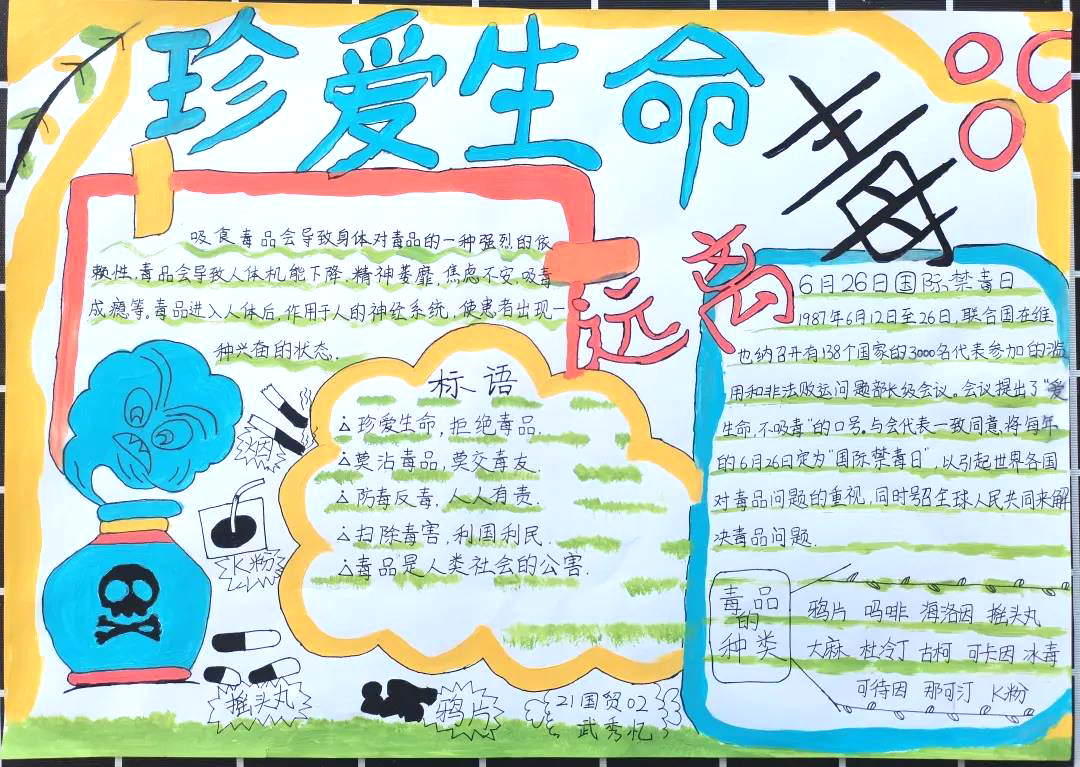 珍爱生命
远离
毒
吸食毒品会导致身体对毒品的一种强烈的依
赖性,毒品会导致人体机能下降,精神萎靡,焦虑不安,吸毒
成瘾等。毒品进入人体后,作用于人的神经系统,使患者出现一
种兴奋的状态..
标语
珍爱生命,拒绝毒品.
莫沾毒品,莫交毒友.
防毒反毒,人人有责.
扫除毒害,利国利民.
毒品是人类社会的公害.
烟
K粉
摇头丸
鸦片
21国贸02
武秀忆
6月26日国际禁毒日
1987年6月12日至26日,联合国在维
也纳召开有138个国家的3000名代表参加的滥
用和非法贩运问题部长级会议。会议提出了“爱
生命,不吸毒”的口号。与会代表一致同意将每年
的6月26日定为“国际禁毒日”,以引起世界各国
对毒品问题的重视,同时号召全球人民共同来解
决毒品问题.
毒品
的
种类
鸦片 吗啡 海洛因 摇头丸
大麻 杜冷丁 古柯 可卡因 冰毒
可待因 那可汀 K粉